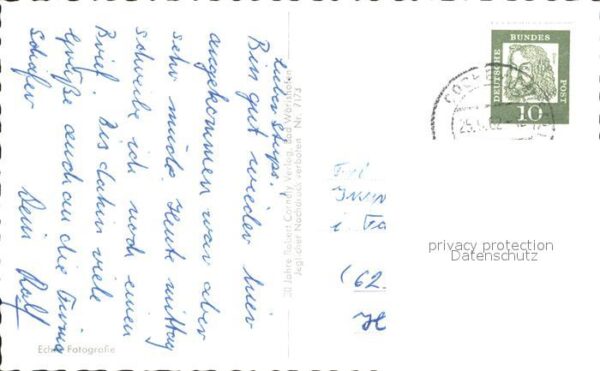 Lieber Stups!
Bin gut wieder hier
angekommen war aber
sehr müde. Heute mittag
schreibe ich noch einen
Brief. Bis dahin viele
Grüße auch an die Firma
Schäfer
Dein Rolf
Echte Fotografie
20 Jahre Robert Conrady Verlag, Bad Wörishofen
Jeglicher Nachdruck verboten Nr. 7173
DEUTSCHE BUNDES POST
10
privacy protection
Datenschutz
(62